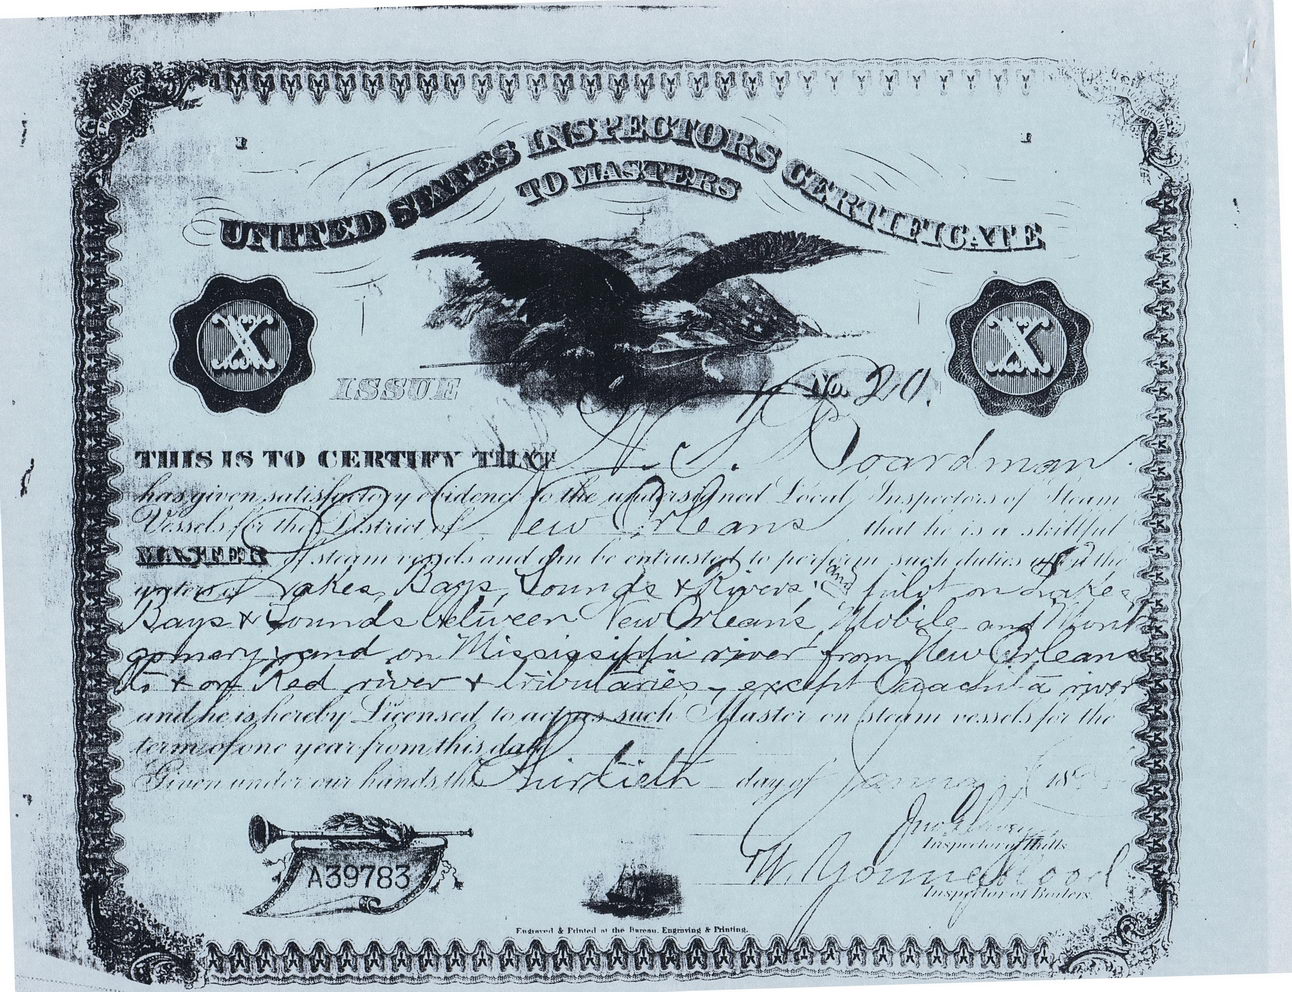 UNITED STATES INSPECTORS CERTIFICATE
TO MASTERS
X
X
ISSUE
No. 20.
THIS IS TO CERTIFY THAT Boardman
has given satisfactory evidence to the undersigned Local Inspectors of Steam
Vessels for the District of New Orleans that he is a skillful
MASTER of steam vessels and can be entrusted to perform such duties upon the
waters of Lakes, Bays, Sounds & Rivers, and pilot on Lakes
Bays & Sounds between New Orleans, Mobile and Mont
gomery; and on Mississippi river from New Orleans
to & on Red river & tributaries, except Ouachita river
and he is hereby Licensed to act as such Master on steam vessels for the
term of one year from this date
Given under our hands this Thirtieth day of January 18
Inspector of Hulls
W. Youngblood
Inspector of Boilers
A39783
Engraved & Printed at the Bureau, Engraving & Printing.